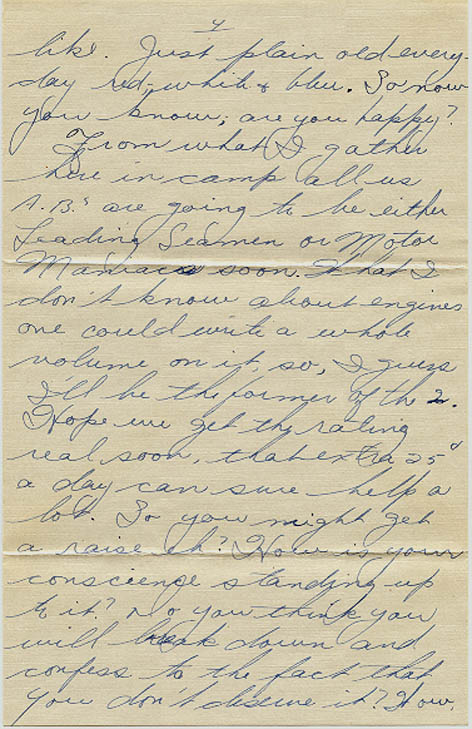 4
like. Just plain old every-
day red, white & blue. So now
you know, are you happy?
From what I gather
here in camp all us
A.B.s are going to be either
Leading Seamen or Motor
Maniacs soon. What I
don't know about engines
one could write a whole
volume on it, so, I guess
I'll be the former of the 2.
Hope we get the rating
real soon, that extra 25¢
a day can sure help a
lot. So you might get
a raise eh? How is your
conscience standing up
to it? Do you think you
will break down and
confess to the fact that
you don't deserve it? How